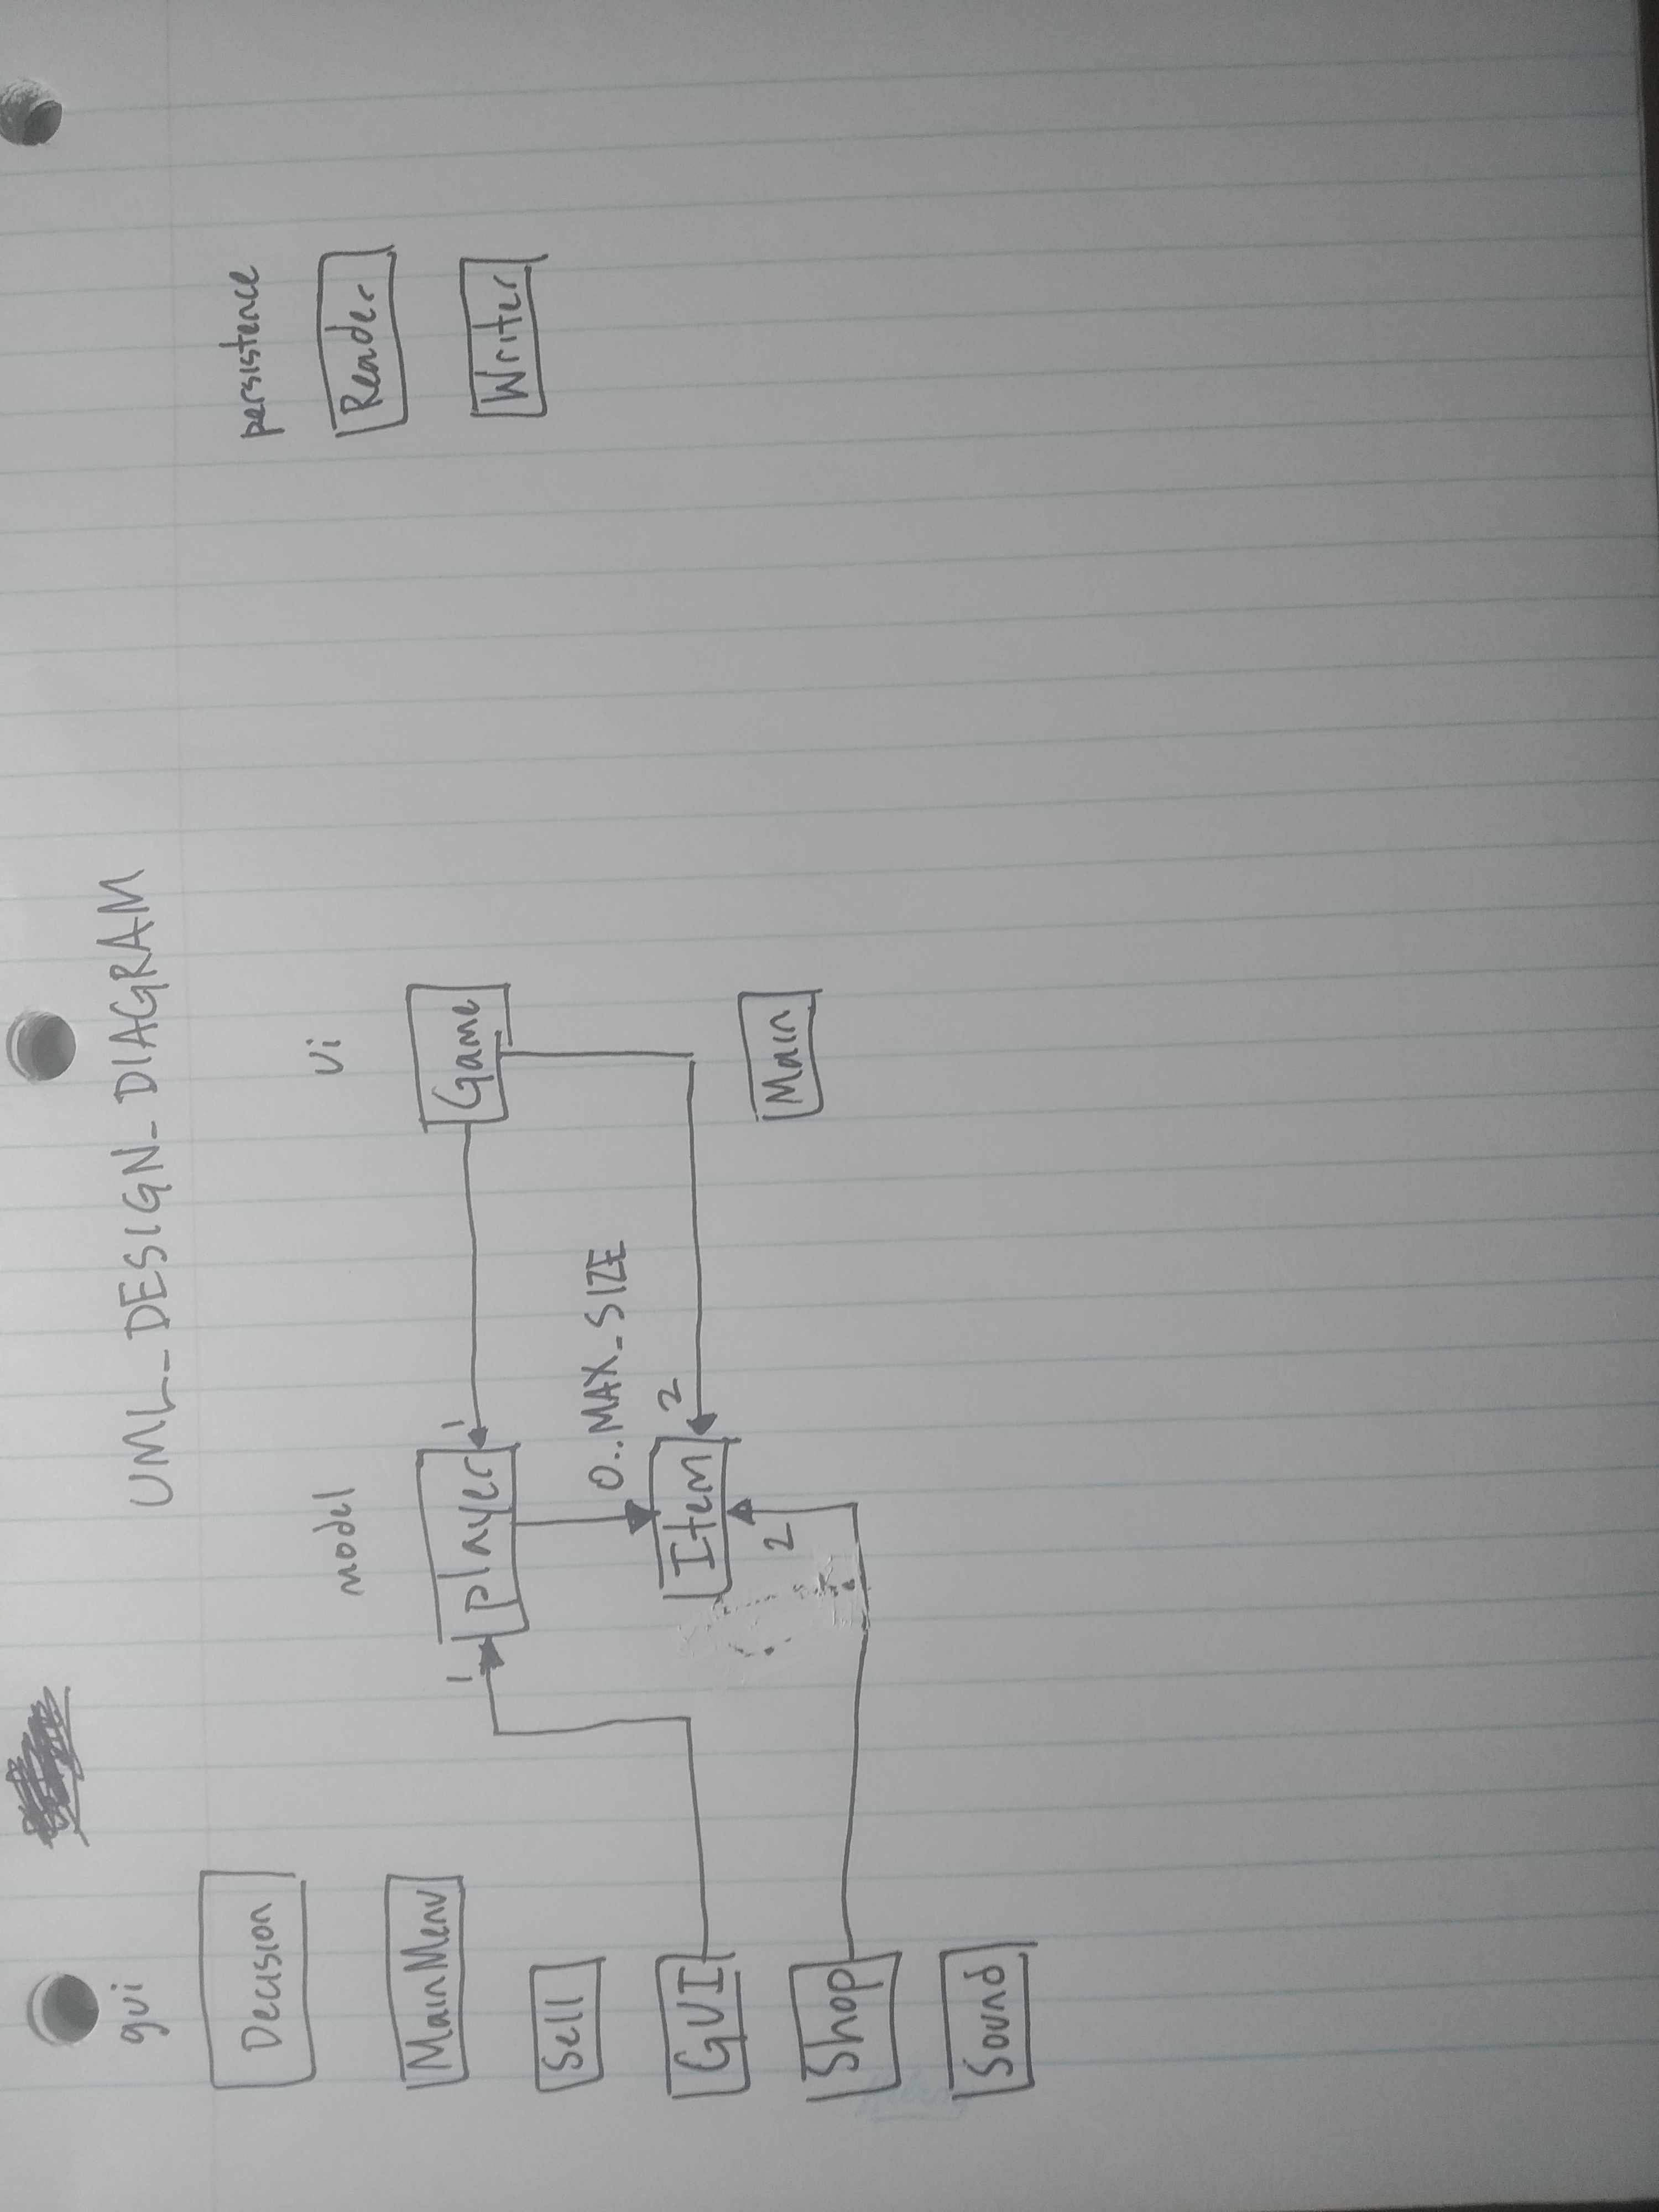 UML_DESIGN_DIAGRAM
gui
Decision
MainMenu
Sell
GUI
Shop
Sound
model
player
1
1
0..MAX_SIZE
Item
2
2
ui
Game
Main
persistence
Reader
Writer